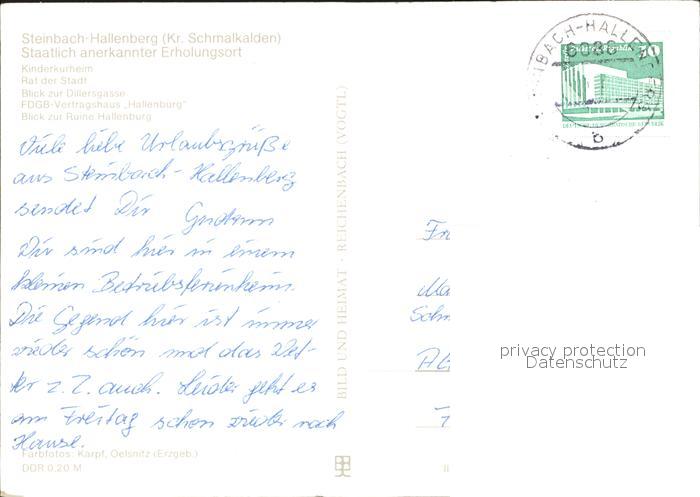 Steinbach-Hallenberg (Kr. Schmalkalden)
Staatlich anerkannter Erholungsort
Kinderkurheim
Rat der Stadt
Blick zur Dillersgasse
FDGB-Vertragshaus „Hallenburg"
Blick zur Ruine Hallenburg
Viele liebe Urlaubsgrüße
aus Steinbach-Hallenberg
sendet Dir
Wir sind hier in einem
kleinen Betriebsferienheim.
Die Gegend hier ist immer
wieder schön und das Wet-
ter z. Z. auch. Leider geht es
am Freitag schon wieder nach
Hause.
Farbfotos: Karpf, Oelsnitz (Erzgeb.)
DDR 0,20 M
BILD UND HEIMAT · REICHENBACH (VOGTL)
Fr
Ma
Sch
privacy protection
Datenschutz
II
b